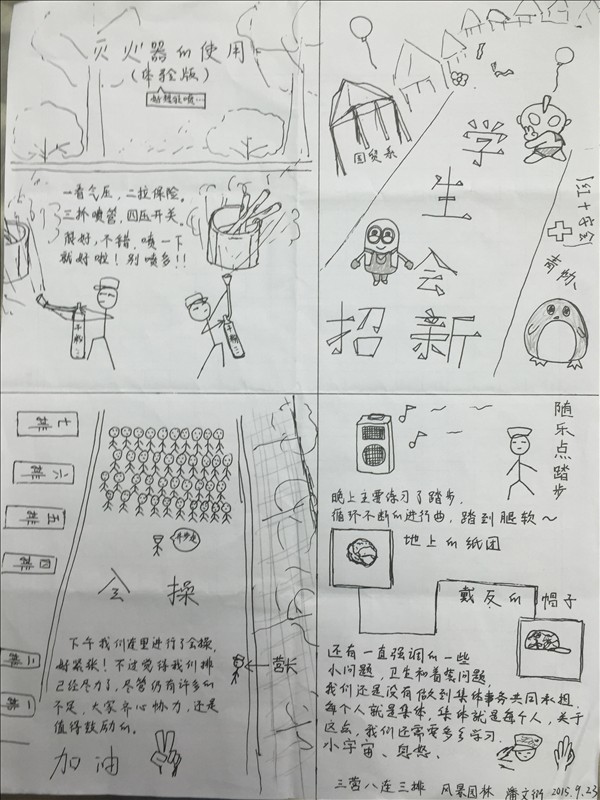 灭火器的使用
(体验版)
一看气压,二拉保险。
三抓喷管,四压开关。
很好,不错,喷一下
就好啦!别喷多!!
干粉
干粉
国贸系
学
生
会
招新
红十字
青协
七排
六排
五排
四排
三排
二排
齐步走
会操
下午我们连里进行了会操,
好紧张!不过觉得我们排
已经尽力了,尽管仍有许多的
不足,大家齐心协力,还是
值得鼓励的。
加油
营长
随乐点踏步
晚上主要练习了踏步,
循环不断的进行曲,踏到腿软~
地上的纸团
戴反的帽子
还有一直强调的一些
小问题,卫生和着装问题,
我们还是没有做到集体事务共同承担,
每个人就是集体,集体就是每个人,关于
这点,我们还需要多多学习。
小宇宙、
三营八连三排 风景园林 潘文衍 2015.9.23